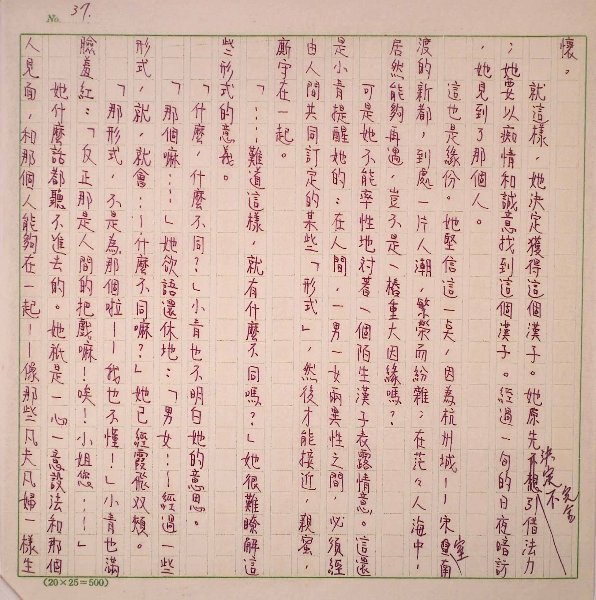 No. 37.
懷。
就這樣，她決定獲得這個漢子。她原先決定不完全借法力
；她要以痴情和誠意找到這個漢子。經過一旬的日夜暗訪
，她見到了那個人。
這也是緣份。她堅信這一點，因為杭州城——宋室南
渡的新都，到處一片人潮，繁榮而紛雜；在茫々人海中，
居然能夠再遇，豈不是一樁重大因緣嗎？
可是她不能率性地對著一個陌生漢子表露情意。這還
是小青提醒她的：在人間，一男一女兩異性之間，必須經
由人間共同訂定的某些「形式」，然後才能接近，親蜜，
廝守在一起。
「……難道這樣，就有什麼不同嗎？」她很難瞭解這
些形式的意義。
「什麼，什麼不同？」小青也不明白她的意思。
「那個嘛……」她欲語還休地：「男女……經過一些
形式，就，就會……什麼不同嘛？」她已經霞飛双頰。
「那形式，不是為那個啦——我也不懂！」小青也滿
臉羞紅：「反正那是人間的把戲嘛！唉！小姐您……」
她什麼話都聽不進去的。她祇是一心一意設法和那個
人見面，和那個人能夠在一起——像那些凡夫凡婦一樣生
(20×25=500)